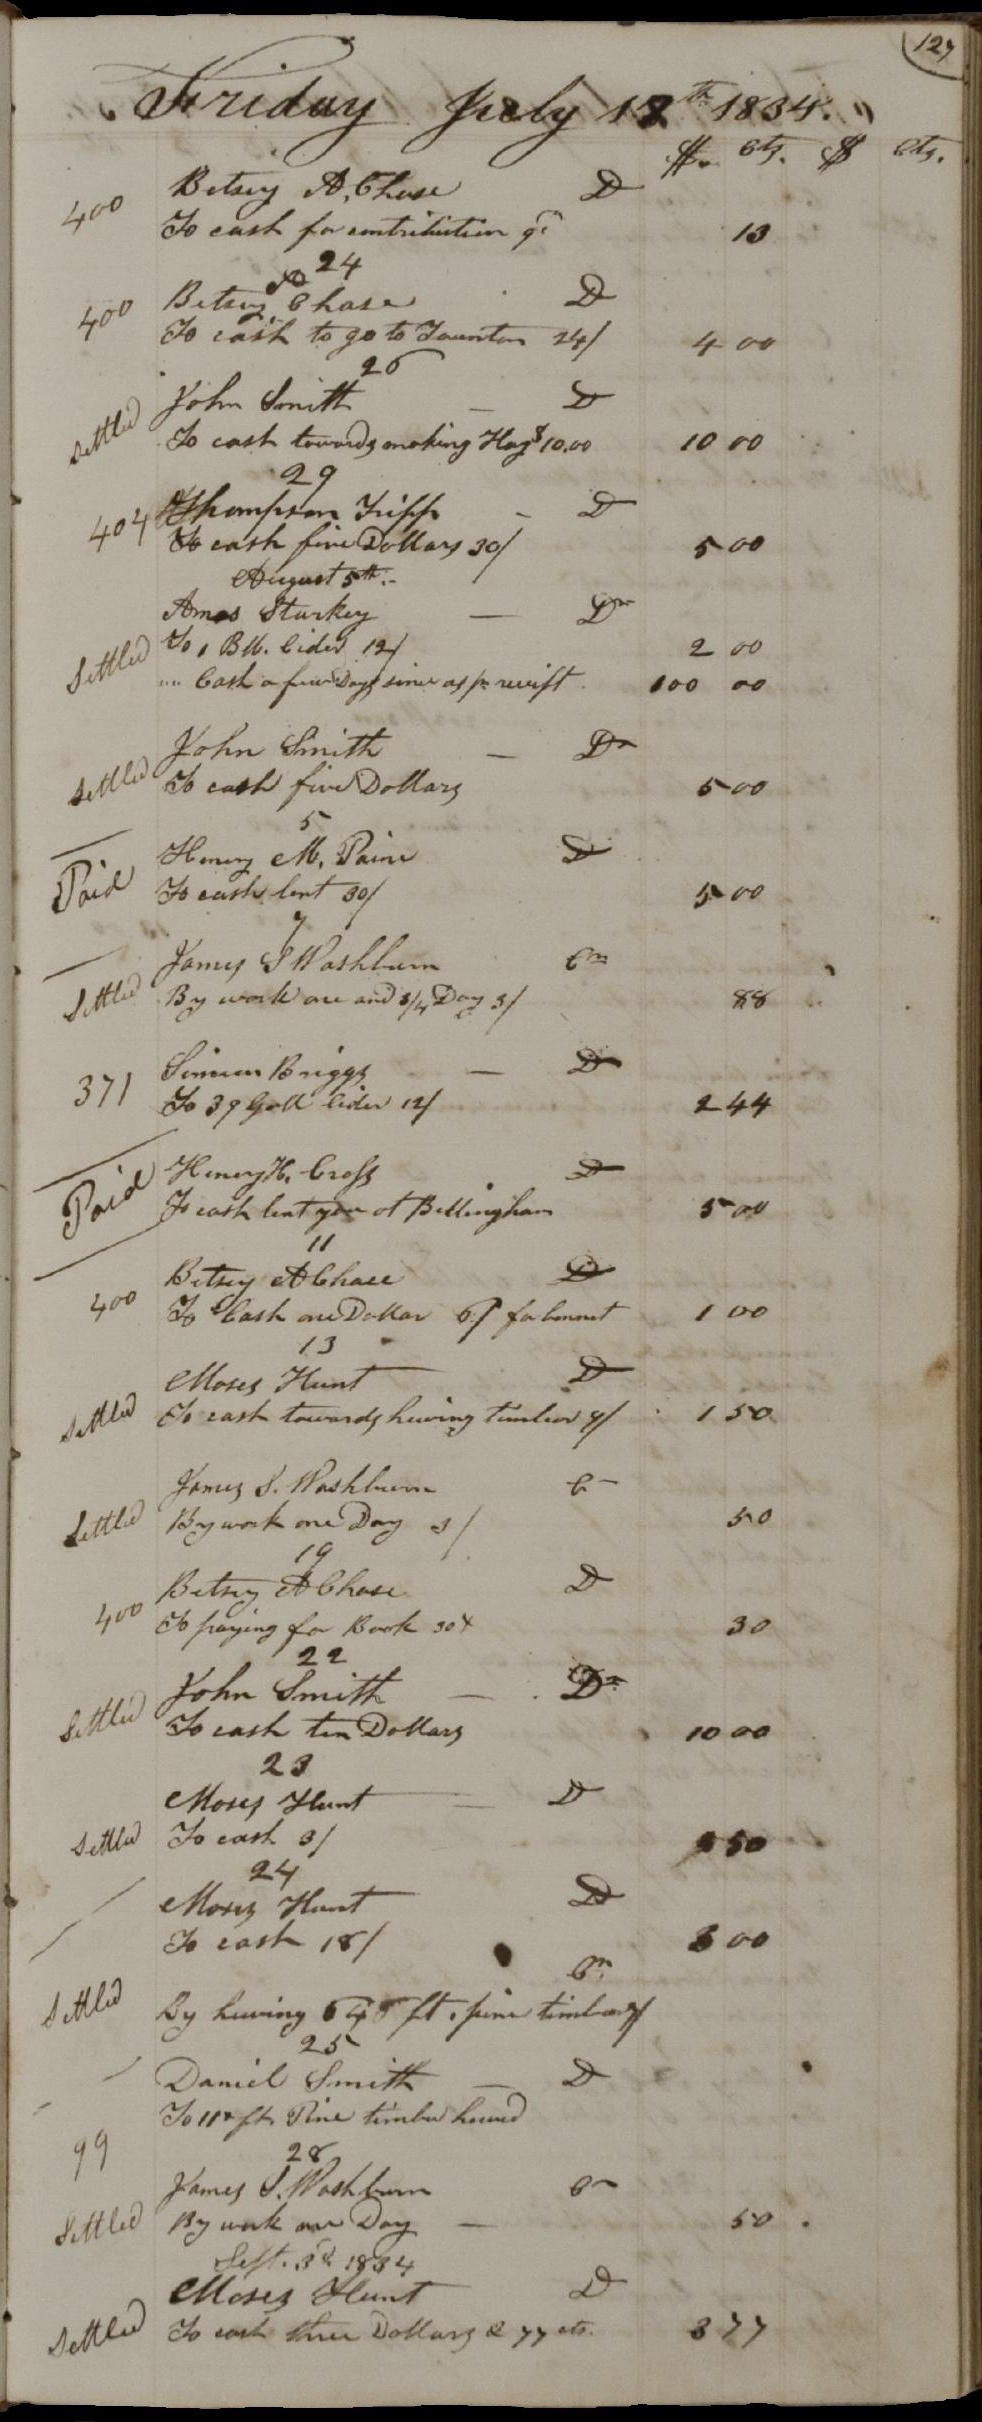 127
Friday July 18th 1834.
$ cts. $ cts.
400 Betsey A, Chase D
To cash for contribution 13
24
400 Betsey A Chase D
To cash to go to Taunton 24/ 4 00
26
John Smith D
Settled To cash towards making Hay $10.00 10 00
29
404 Thompson Tripp D
To cash five Dollars 30/ 5 00
August 5th
Amos Starkey Dr
Settled To 1 Bbl. Cider 12/ 2 00
" Cash a few Days since as pr receipt 100 00
John Smith Dr
Settled To cash five Dollars 5 00
5
Henry M, Paine D
Paid To cash lent 30/ 5 00
7
James S Washburn Cr
Settled By work one and 3/4 Day 3/ 88
371 Simeon Briggs D
To 39 Gall Cider 12/ 2 44
Paid Henry H, Cross D
To cash lent you at Bellingham 5 00
11
400 Betsey A Chace D
To Cash one Dollar 6/ for bonnet 1 00
13
Moses Hunt D
Settled To cash towards hewing timber 9/ 1 50
James S. Washburn Cr
Settled By work one Day 3/ 50
19
400 Betsey A Chase D
To paying for Book 30 30
22
John Smith Dr
Settled To cash ten Dollars 10 00
23
Moses Hunt D
Settled To cash 3/ 50
24
Moses Hunt D
To cash 18/ 3 00
Cr
Settled By hewing ft, pine timber
25
Daniel Smith D
99 To ft Pine timber hewed
28
James S. Washburn Cr
Settled By work one Day 50
Sept. 3d 1834
Moses Hunt D
Settled To cash three Dollars & 77 cts. 3 77